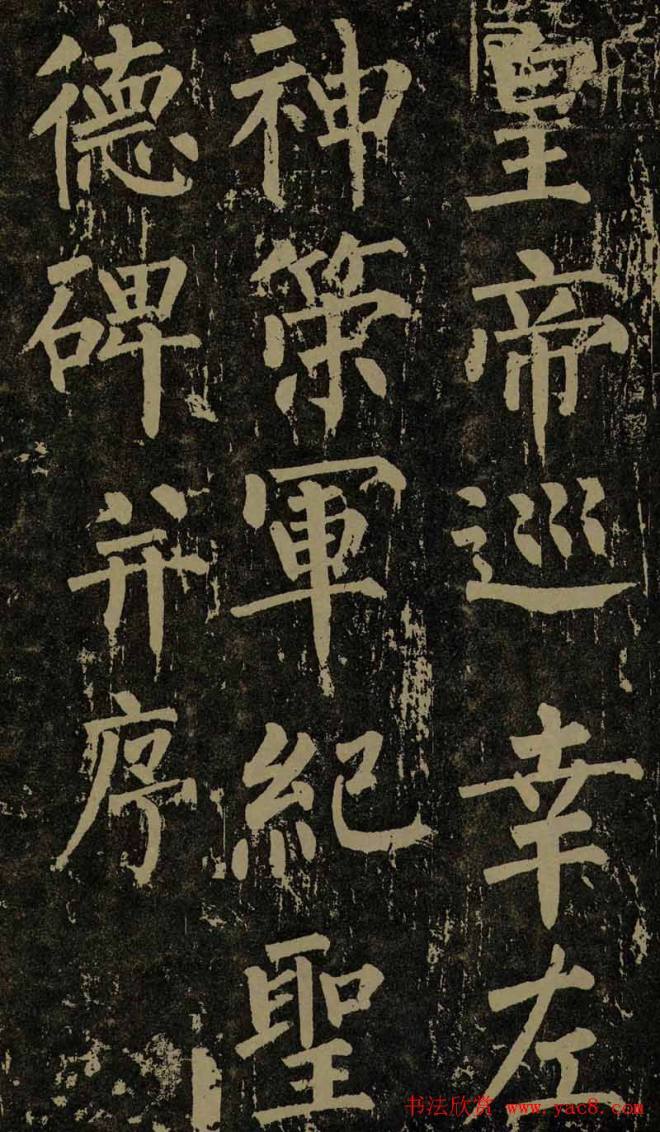 皇帝巡幸左
神策軍紀聖
德碑并序
书法欣赏 www.yac8.com